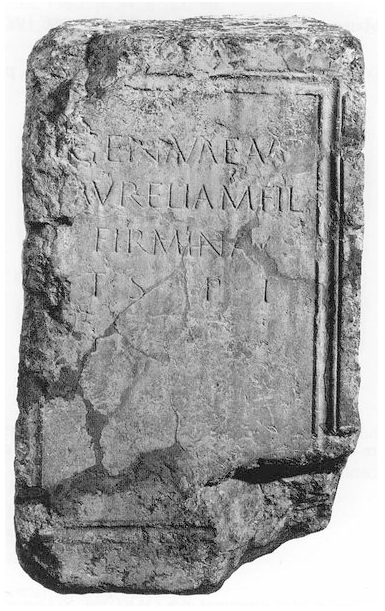 GENVAE M
AVRELIA M FIL
FIRMINA
T S P I